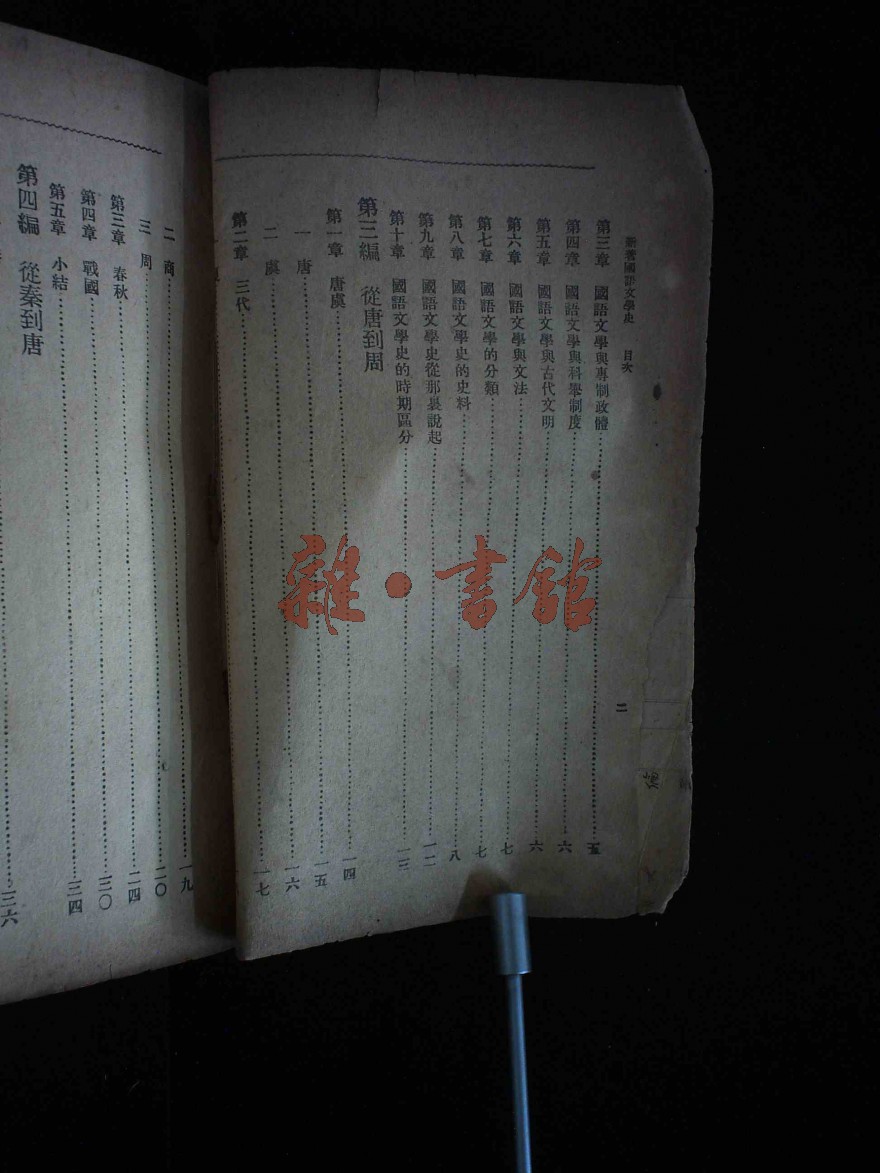 新著國語文學史　目次
二
第三章　國語文學與專制政體……五
第四章　國語文學與科舉制度……六
第五章　國語文學與古代文明……六
第六章　國語文學與文法……七
第七章　國語文學的分類……七
第八章　國語文學史的史料……八
第九章　國語文學史從那裏說起……一二
第十章　國語文學史的時期區分……一三
第三編　從唐到周
第一章　唐虞……一四
一　唐……一五
二　虞……一六
第二章　三代……一七
二　商……一九
三　周……二〇
第三章　春秋……二四
第四章　戰國……三〇
第五章　小結……三四
第四編　從秦到唐
三六
雜·書館